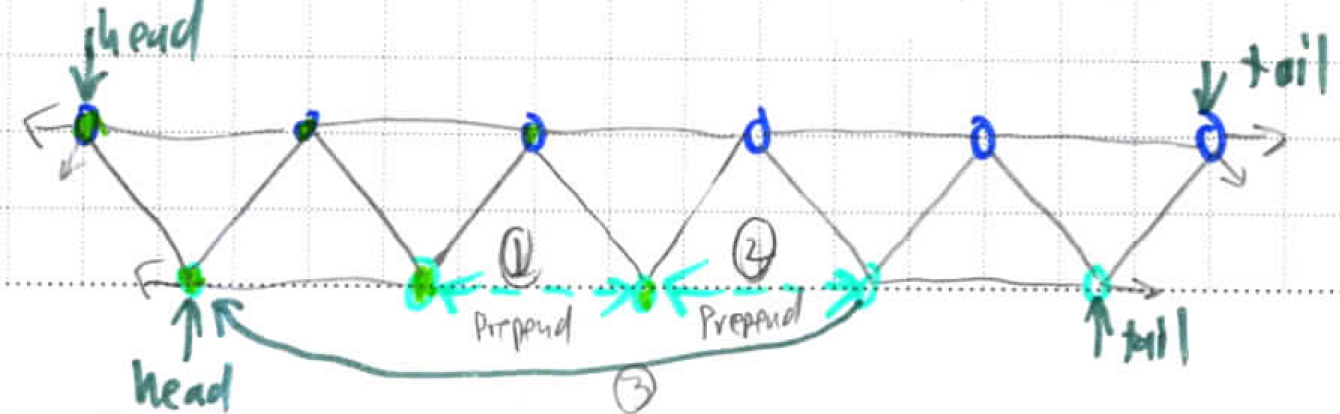 head
tail
① ②
Prepend Prepend
head
tail
③